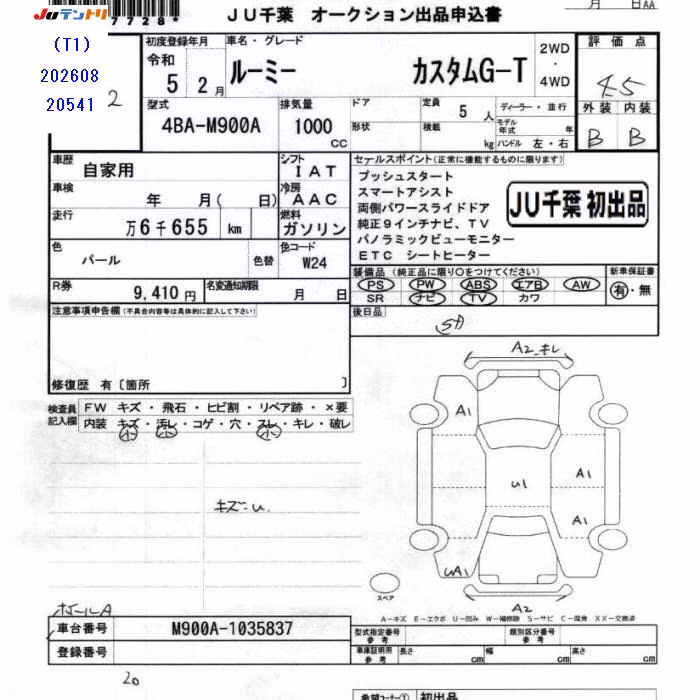 JUテントリ
7728*
JU千葉 オークション出品申込書
月 日AA
(T1)
202608
20541
2
初度登録年月
令和
5 2月
車名・グレード
ルーミー カスタムG-T
2WD
・
4WD
評価点
4.5
外装 内装
B B
型式
4BA-M900A
排気量
1000
CC
ドア
形状
定員 5 人
積載 kg
ディーラー・並行
モデル年式 年
ハンドル 左・右
車歴
自家用
シフト
IAT
車検 年 月( 日)
冷房
AAC
走行 万6千655 km
燃料
ガソリン
色 パール 色替
色コード
W24
R券 9,410円
名変通知期限 月 日
セールスポイント(正常に機能するものに限ります)
プッシュスタート
スマートアシスト
両側パワースライドドア
純正9インチナビ、TV
パノラミックビューモニター
ETC シートヒーター
JU千葉 初出品
装備品(純正品に限り○をつけてください)
PS PW ABS エアB AW
SR ナビ TV カワ
新車保証書
有・無
後日品
注意事項申告欄(不具合内容等は具体的に記入して下さい)
修復歴 有〔箇所 〕
検査員
記入欄
FW キズ・飛石・ヒビ割・リペア跡・×要
内装 キズ・汚レ・コゲ・穴・スレ・キレ・破レ
小 小 小
キズ・U
A2 キレ
A1
U1
A1
A1
UA1
A2
スペア
A-キズ E-エクボ U-凹み W-補修跡 S-サビ C-腐食 XX-交換済
ホイールA
車台番号 M900A-1035837
登録番号
型式指定番号
参考
類別区分番号
参考
車庫証明用
参考
長さ cm 幅 cm 高さ cm
20
希望コーナー① 初出品